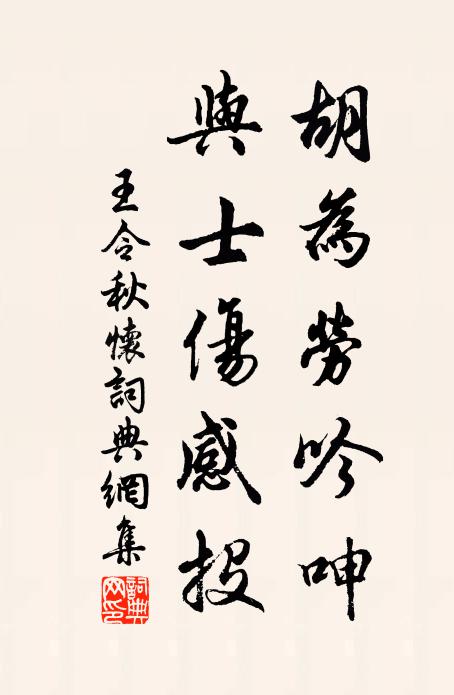 胡為勞吟呻
與士傷感投
王令秋懷詞典網集
詞典网印